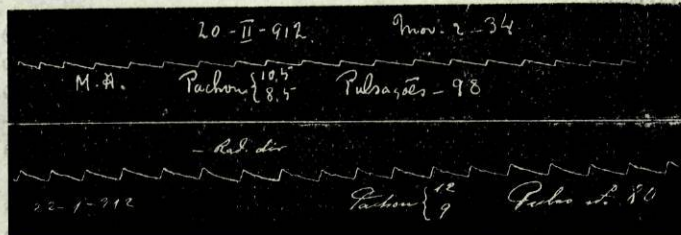 20-II-912. Mov. 2-34
M. A. Pachon { 10,5 8,5 Pulsações - 98
- Rad. dir
22-1-912 Pachon { 12 9 Pulso